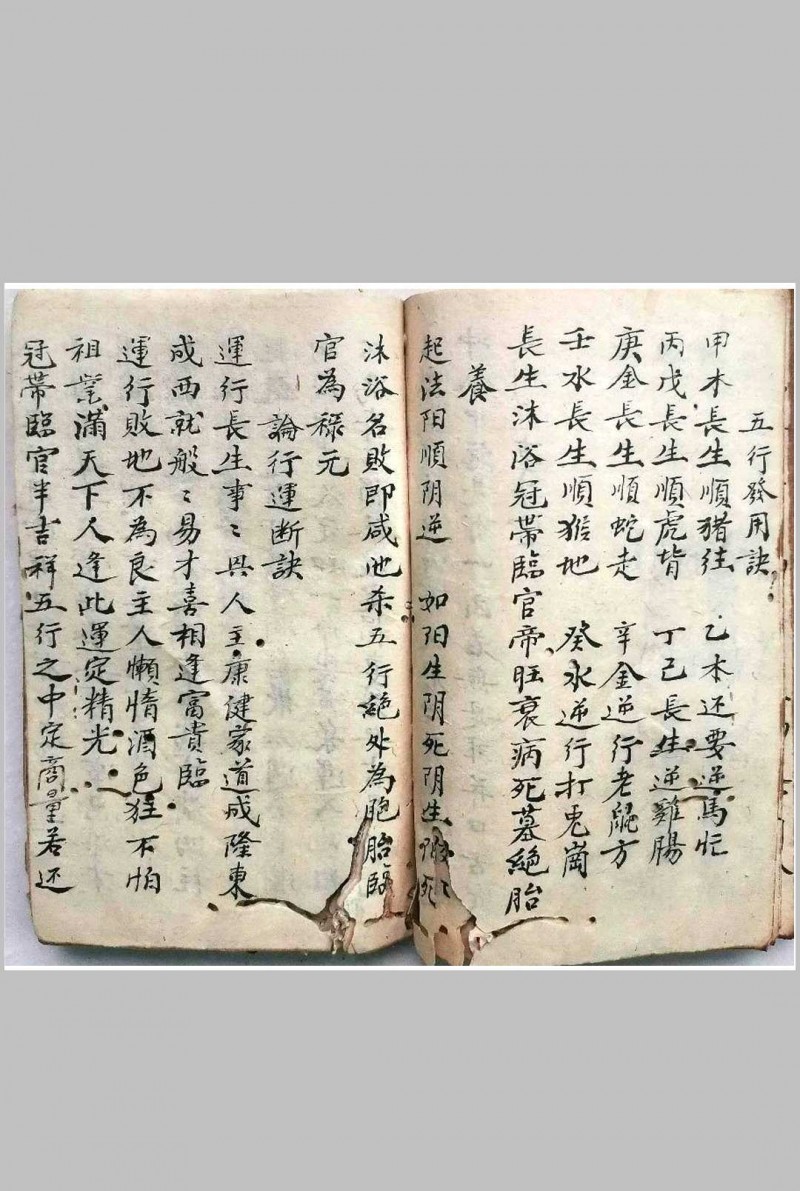 五行發用訣
甲木長生順猪往 乙木还要逆馬忙
丙戊長生順虎背 丁己長生逆雞腸
庚金長生順蛇走 辛金逆行老鼠方
壬水長生順猴地 癸水逆行打兎崗
長生沐浴冠帶臨官帝旺衰病死墓絕胎
養
起法阳順阴逆 如阳生阴死阴生阳死
沐浴名敗即咸池杀五行絕处為胞胎臨
官為祿元
論行運断訣
運行長生事〻兴人主康健家道成隆東
成西就般〻易才喜相逢富貴臨
運行敗地不為良主人懶惰酒色狂不怕
祖業滿天下人逢此運定精光
冠帶臨官半吉祥五行之中定商量若还